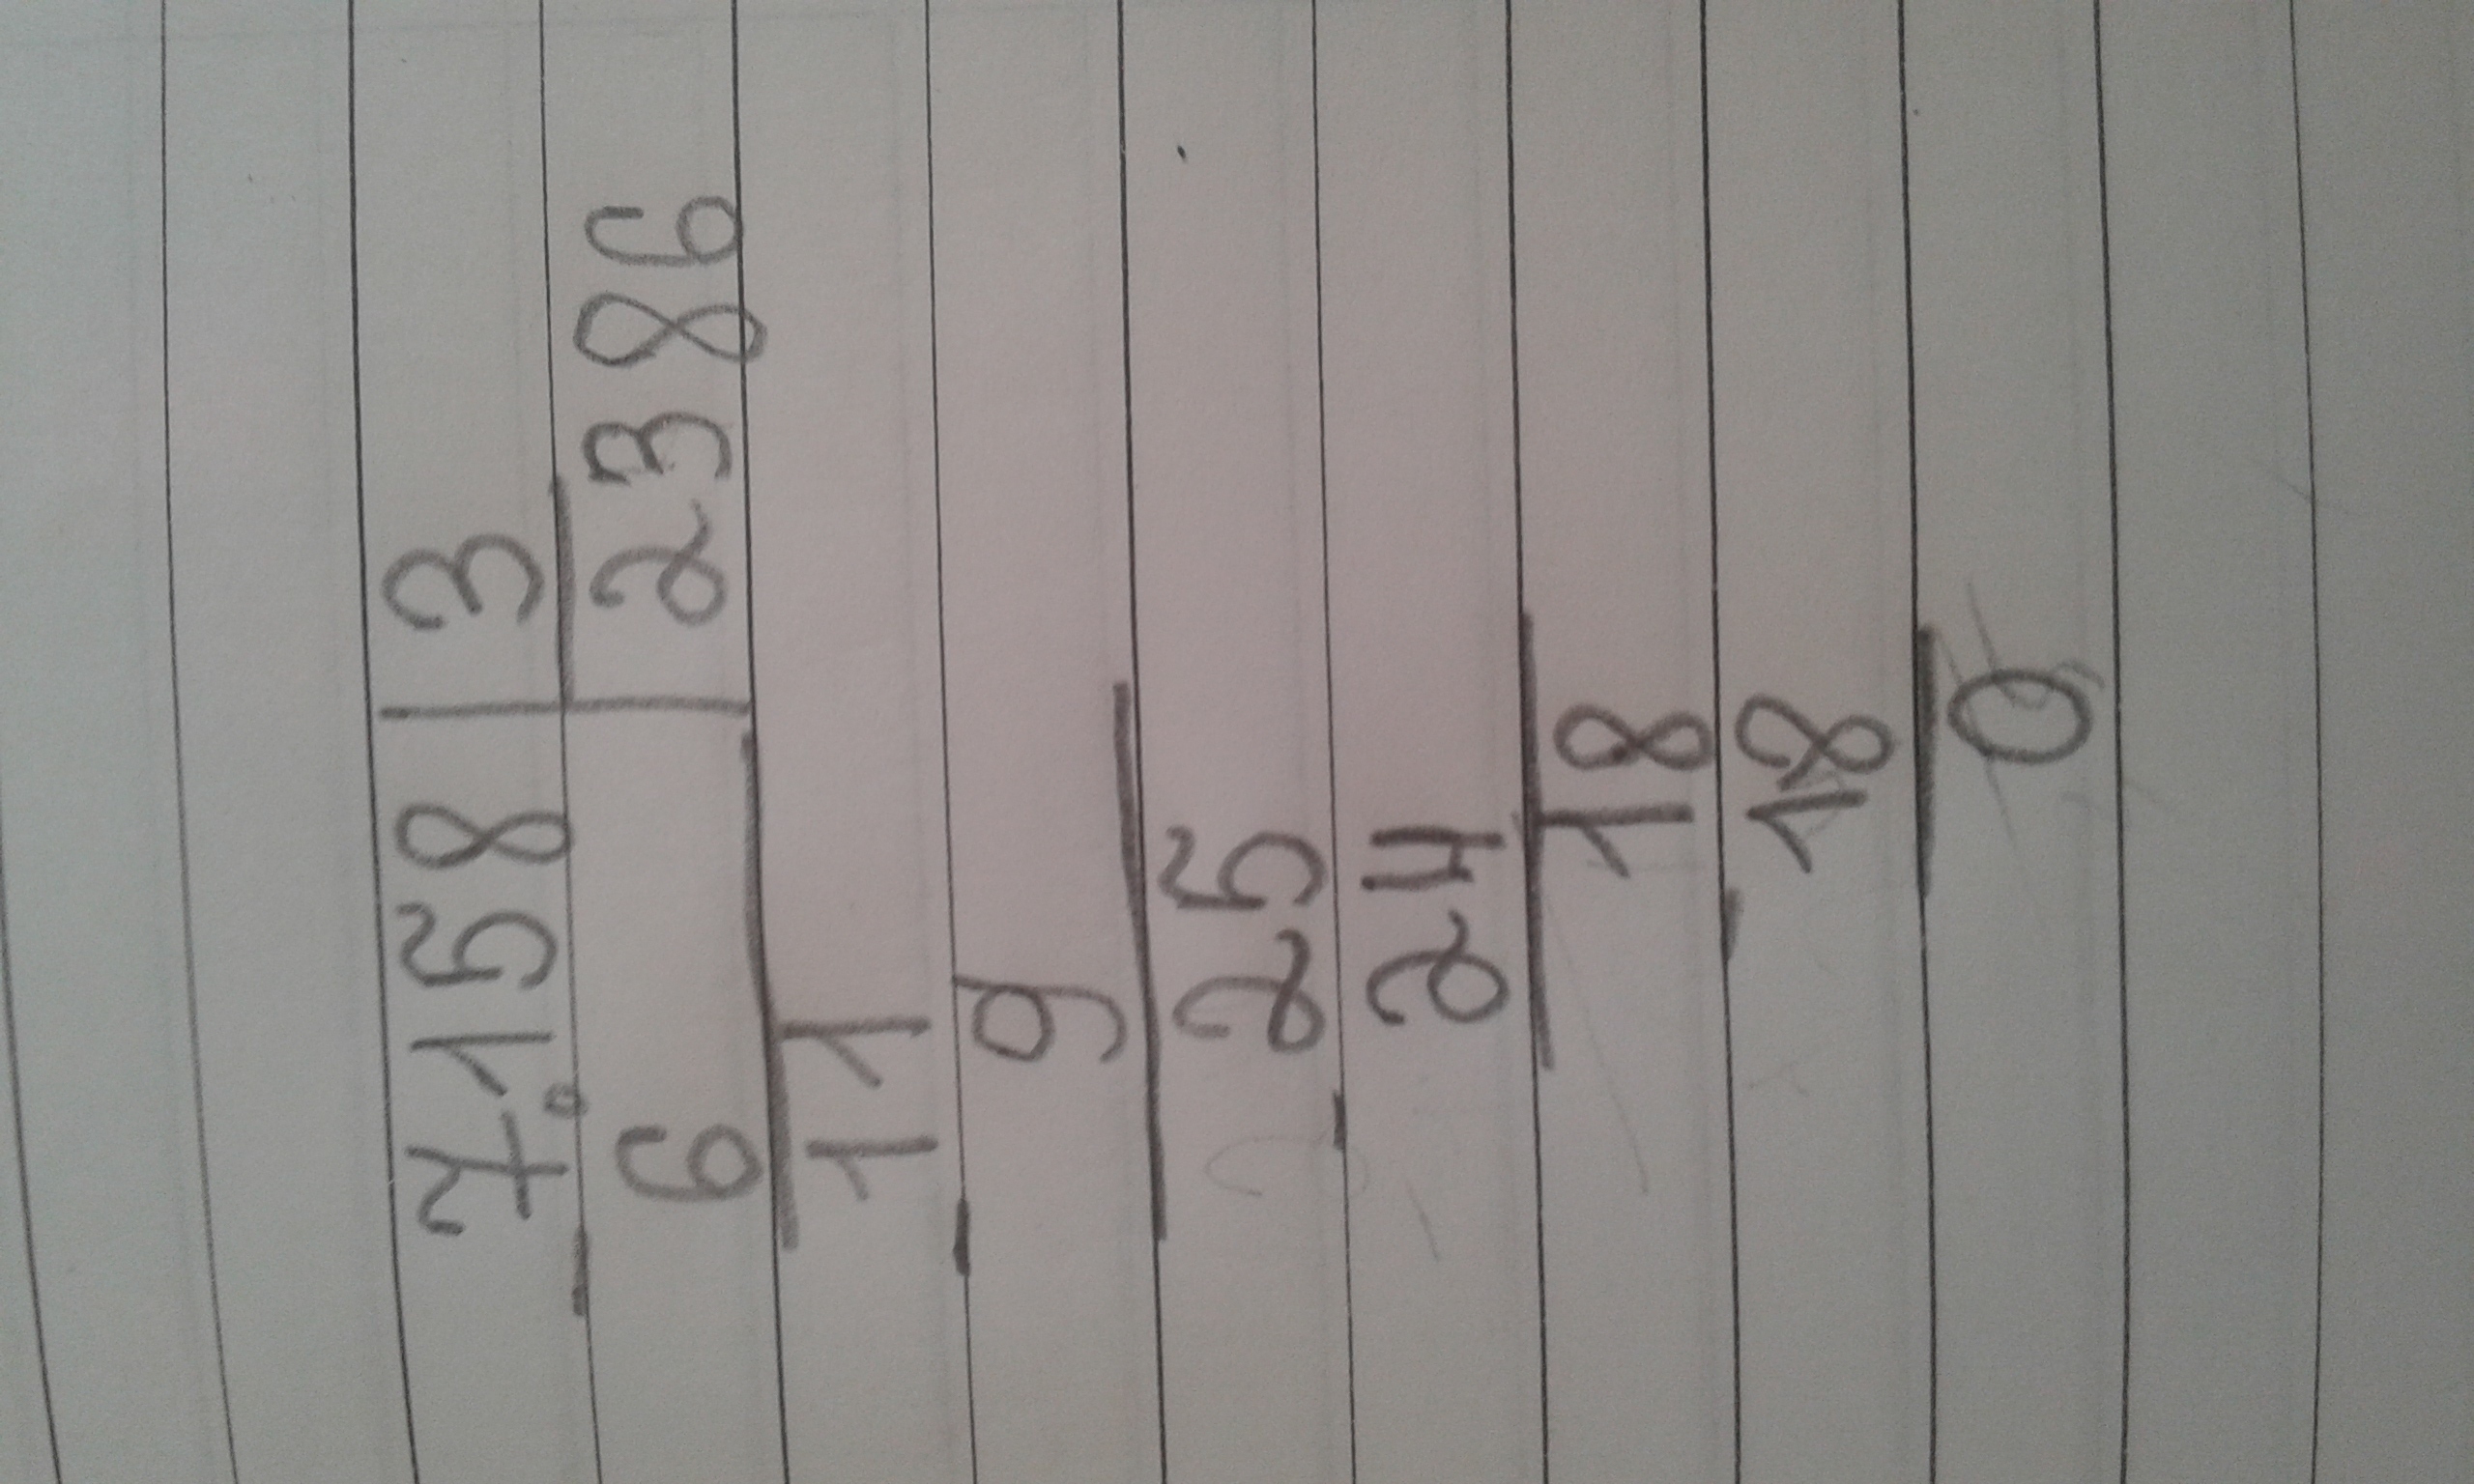 7.158 | 3
6 | 2386
11
9
25
24
18
18
0